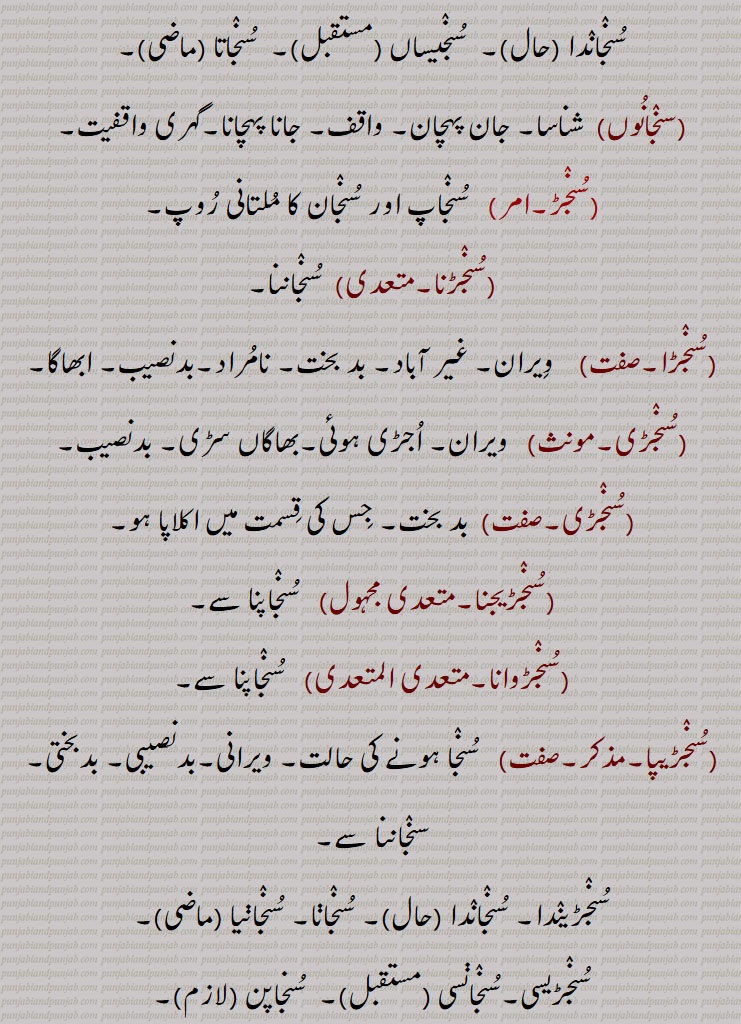 سُنٛجانٛدا (حال)۔ سُنٛجیساں (مستقبل)۔ سُنٛجاتا (ماضی)۔
(سنٛجانُوں) شناسا۔ جان پہچان۔ واقف۔ جانا پہچانا۔گہری واقفیت۔
(سُنٛجڑ۔امر) سُنٛجاپ اور سُنٛجان کا مُلتانی رُوپ۔
(سُنٛجڑنا۔متعدی) سُنٛجاننا۔
(سُنٛجڑا۔صفت) وِیران۔ غیر آباد۔ بد بخت۔ نامُراد۔بدنصیب۔ ابھاگا۔
(سُنٛجڑی۔مونث) ویران۔ اُجڑی ہوئی۔بھاگاں سڑی۔ بدنصیب۔
(سُنٛجڑی۔صفت) بد بخت۔ جِس کی قِسمت میں اکلاپا ہو۔
(سُنٛجڑیجنا۔متعدی مجہول) سُنٛجاپنا سے۔
(سُنٛجڑوانا۔متعدی المتعدی) سُنٛجاپنا سے۔
(سُنٛجڑیپا۔مذکر۔صفت) سُنٛجا ہونے کی حالت۔ ویرانی۔بدنصیبی۔ بدبختی۔
سنٛجاننا سے۔
سُنٛجڑینٛدا۔ سُنٛجانٛدا (حال)۔ سُنٛجاتا۔ سُنٛجاتیا (ماضی)۔
سُنٛجڑیسی۔سُنٛجانسی (مستقبل)۔ سُنجاپن (لازم)۔